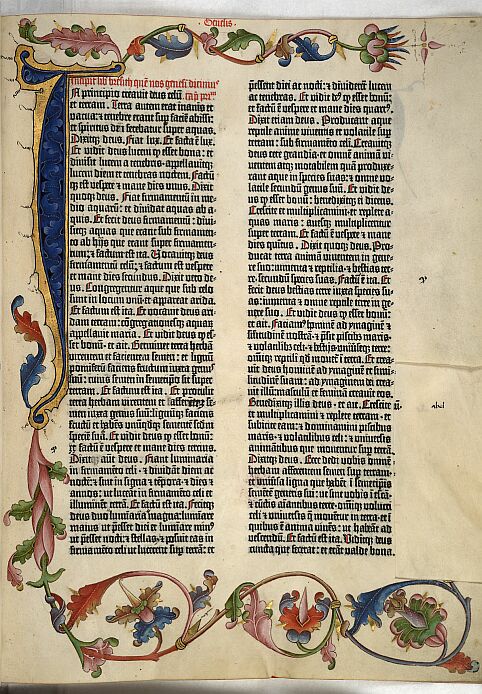 Genesis.
Incipit lib̄ bresith quē nos genesim dicimꝰ
In principio creauit deus celū cap̄ pr̄m
et terram. Terra autem erat inanis et
vacua: et tenebre erant sup faciē abissi:
et spiritus dn̄i ferebatur super aquas.
Dixitqꝫ deus. Fiat lux. Et facta ē lux.
Et vidit deus lucem qꝙ esset bona: et
diuisit lucem a tenebris‧appellauitqꝫ
lucem diem et tenebras noctem. Factūqꝫ
est vespere et mane dies unus. Dixit
quoqꝫ deus. Fiat firmamentū in me-
dio aquarū: et diuidat aquas ab a-
quis. Et fecit deus firmamentū: diui-
sitqꝫ aquas que erant sub firmamen-
to ab hijs que erant super firmamen-
tum: et factum est ita. Vocauitqꝫ deus
firmamentum celū: et factum est vespere
et mane dies secundus. Dixit vero de-
us. Congregentur aque que sub celo
sunt in locum vnū et appareat arida.
Et factum est ita. Et vocauit deus ari-
dam terram: cōgregacionesqꝫ aquaꝝ
appellauit maria. Et vidit deus qꝙ es-
set bonū‧et ait. Germinet terra herbā
virentem et facientem semen: et lignū
pomiferū faciens fructum iuxta genus
suū: cuius semen in semetipo sit super
terram. Et factum est ita. Et protulit
terra herbam virentem et facientem se-
men iuxta genus suū: lignūqꝫ faciens
fructū et habēs unūqdqꝫ sementē scdm
speciē suā. Et vidit deus qꝙ esset bonū:
et factū ē vespere et mane dies tercius.
Dixitqꝫ aūt deus. Fiant luminaria
in firmamēto celi‧et diuidāt diem ac
noctē: et sint in signa et tēpora‧et dies et
annos: ut luceāt in firmamēto celi et
illuminēt terrā. Et factū est ita. Fecitqꝫ
deus duo luminaria magna: luminare
maius ut pesset diei et luminare minꝰ
ut pesset nocti: et stellas‧et posuit eas in
firmamēto celi ut lucerent sup terrā: et
pessent diei ac nocti: et diuiderent lucem
ac tenebras. Et vidit deꝰ qꝙ esset bonū:
et factū ē vespere et mane dies quartꝰ.
Dixit etiam deus. Producant aque
reptile anime viuentis et volatile sup
terram: sub firmamēto celi. Creauitqꝫ
deus cete grandia‧et omnē animā vi-
uentem atqꝫ motabilem quā produxe-
rant aque in species suas: et omne vo-
latile secundū genus suū. Et vidit de-
us qꝙ esset bonū: benedixitqꝫ ei dicens.
Crescite et multiplicamini‧et replete a-
quas maris: auesqꝫ multiplicentur
super terram. Et factū ē vespere et mane
dies quintus. Dixit quoqꝫ deus. Pro-
ducat terra animā viuentem in gene-
re suo: iumenta et reptilia‧et bestias ter-
re secundū species suas. Factūqꝫ ē ita. Et
fecit deus bestias terre iuxta species su-
as: iumenta et omne reptile terre in ge-
nere suo. Et vidit deus qꝙ esset bonū:
et ait. Faciamꝰ hominē ad ymaginē et
similitudinē nostrā‧et psit piscibꝫ maris‧
et volatilibꝫ celi‧et bestijs vniūseqꝫ terre:
omniqꝫ reptili qd mouet̄ ī terra. Et crea-
uit deus hominē ad ymaginē et simi-
litudinē suam: ad ymaginem dei crea-
uit illū: masculū et feminā creauit eos.
Benedixitqꝫ illis deus‧et ait. Crescite
et multiplicamini et replete terram‧et
subicite eam: et dominamini piscibus
maris‧et volatilibus celi: et vniuersis
animātibus que mouentur sup terrā.
Dixitqꝫ deus. Ecce dedi vobis omnē
herbam afferentem semen sup terram‧
et vniūsa ligna que habēt ī semetipis
sementē generis sui: ut sint vobis ī escā‧
et cūctis aīantibus terre‧omīqꝫ volucri
celi et vniuersis q̄ mouētur in terra‧et ī
quibus ē anima viuēs: ut habeāt ad
vescendū. Et factū est ita. Viditqꝫ deus
cuncta que fecerat: et erāt valde bona.
abel